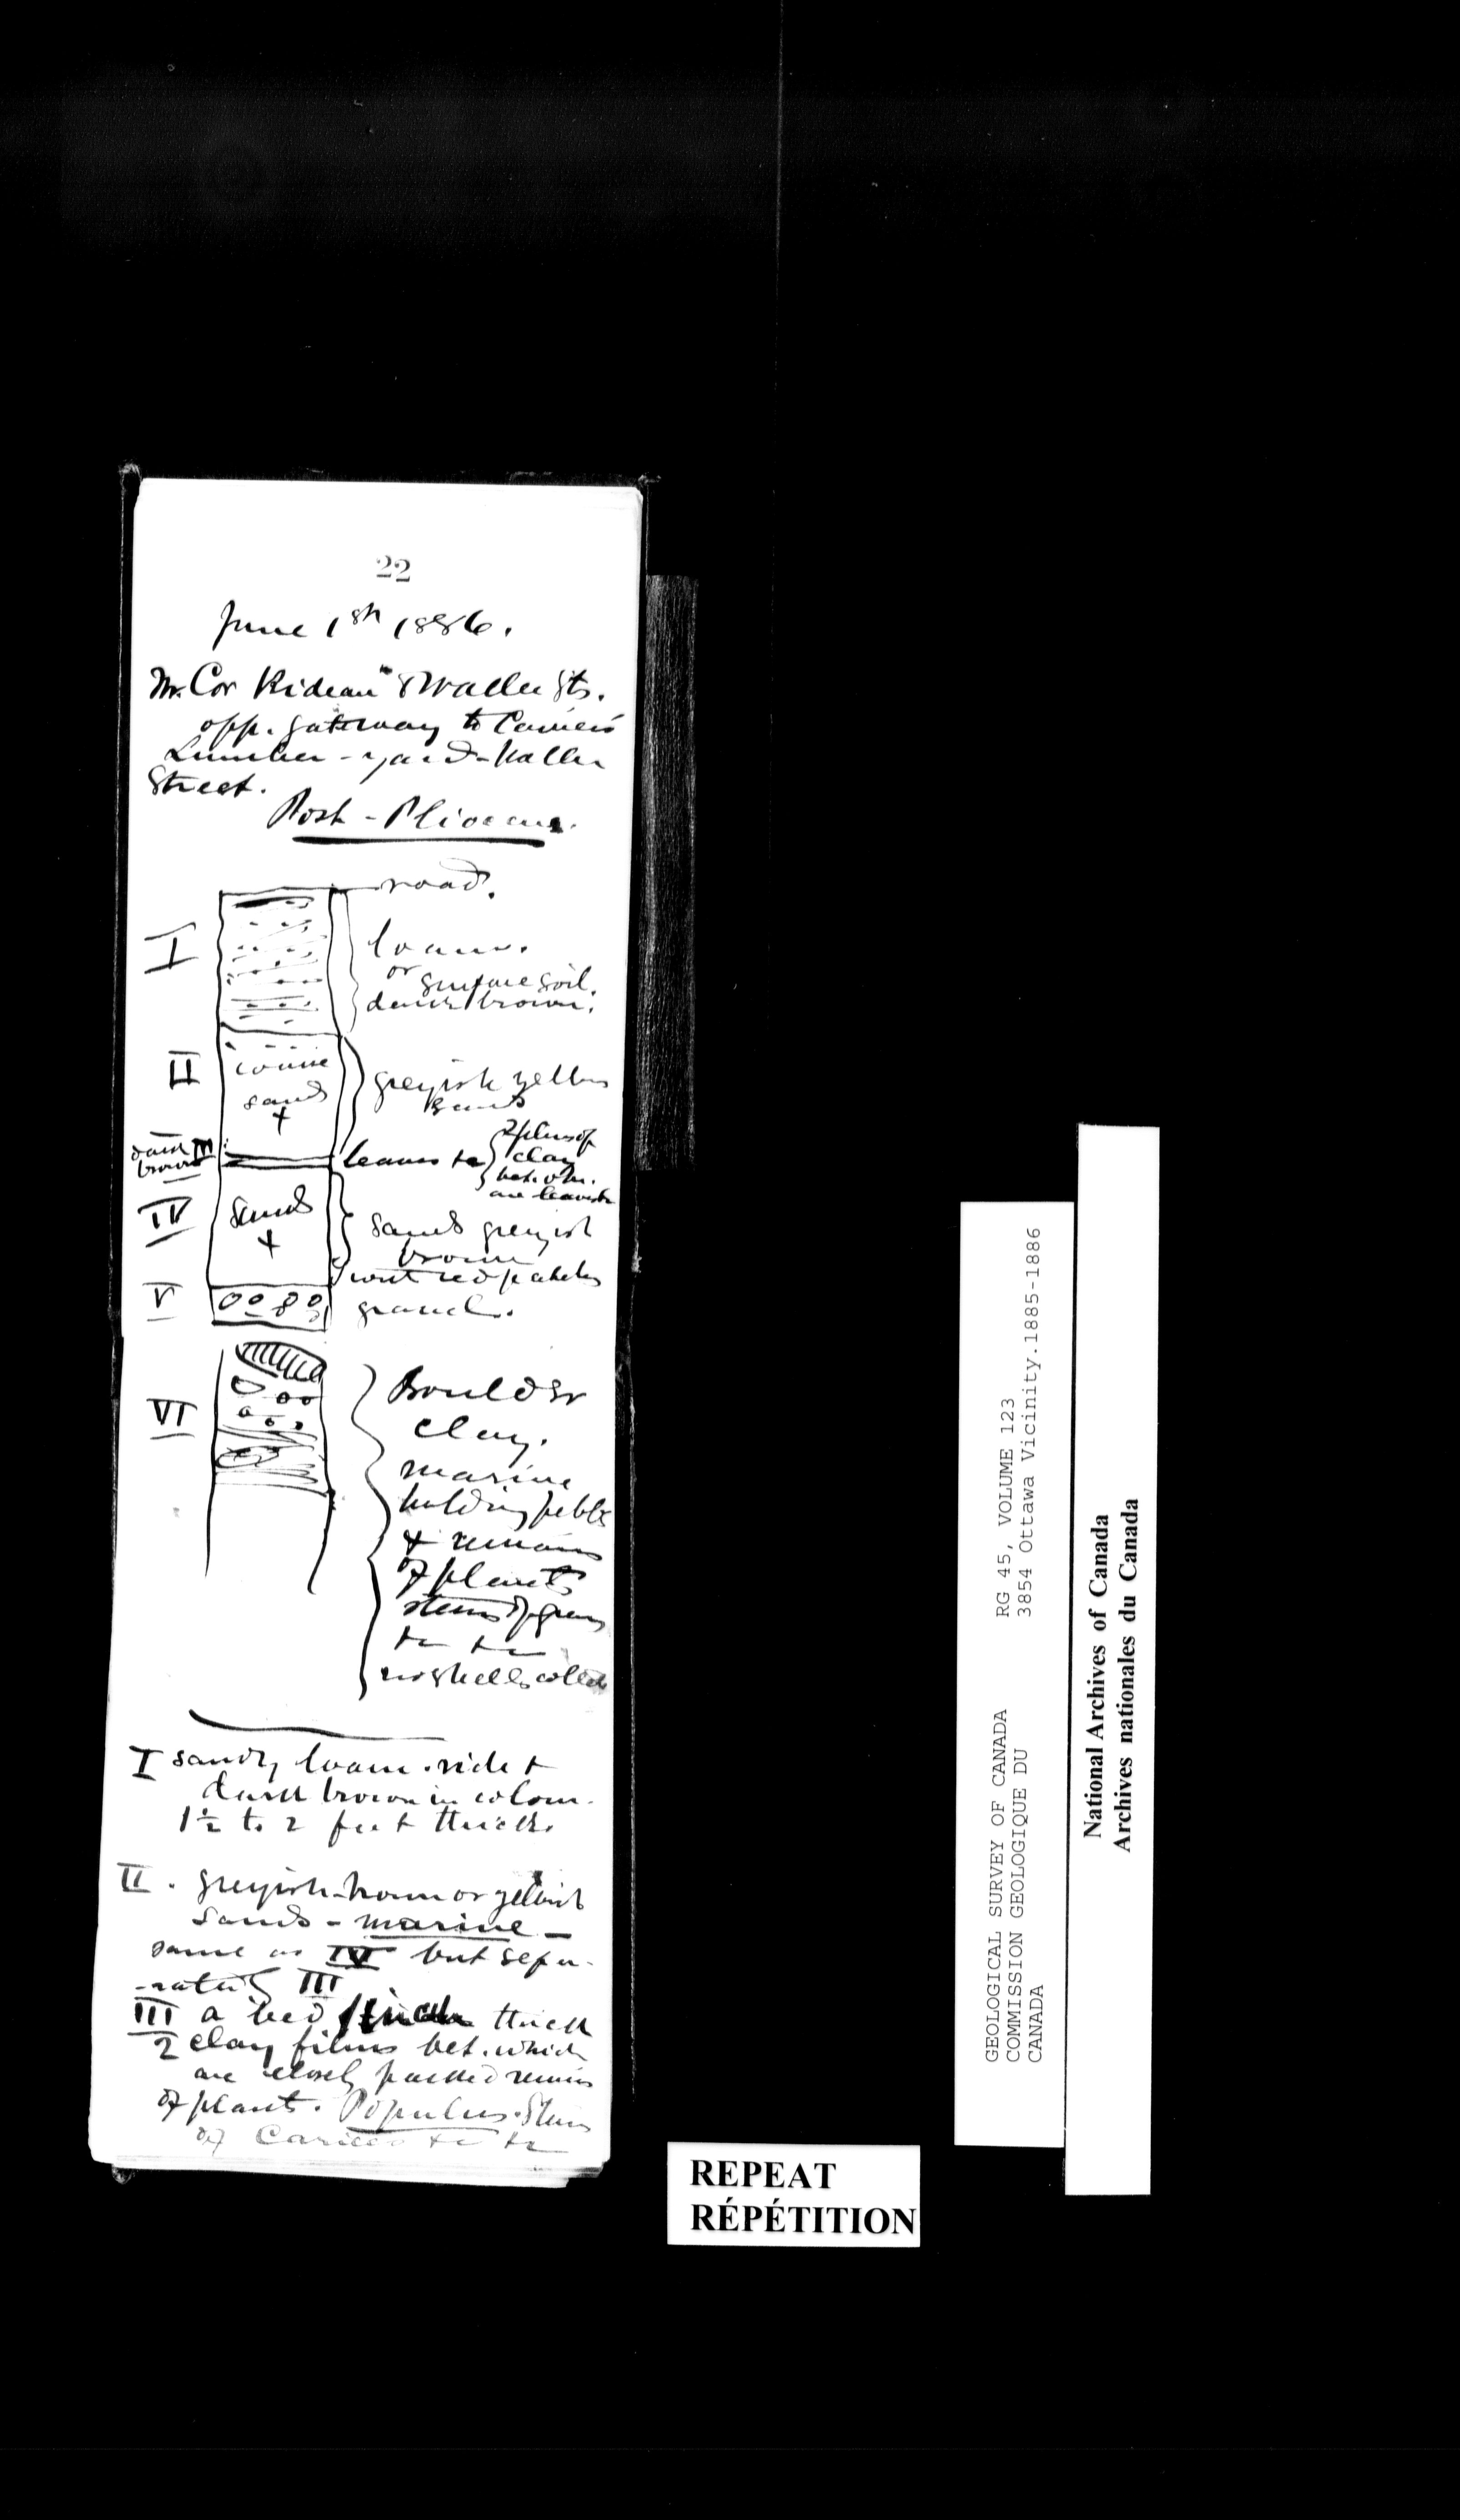 22
June 1st 1886.
Nr. Cor Rideau & Waller Sts.
opp. gateway to
Lumber-yard - Waller
Street.
Post-Pliocene.
road.
I
loam.
or
surface soil.
dark brown.
II
sand
+
greyish yellow
sand
dark
brown
III
leaves &c
2 films of
clay
bet. wh.
are leaves &c
IV
sand
+
sand greyish
brown
with red patches
V
gravel.
VI
Boulder
clay.
marine
holding pebbles
& remains
of plants
stems of grass
&c &c
no shells
I sandy loam. rich &
dark brown in colour.
1½ to 2 feet thick.
II. greyish-brown or yellowish
sands - marine -
same as IV but sepa-
-rated III
III a bed inch thick
2 clay films bet. which
are closely packed remains
of plants. Populus. Stems
of &c &c
REPEAT
RÉPÉTITION
GEOLOGICAL SURVEY OF CANADA
COMMISSION GEOLOGIQUE DU
CANADA
RG 45, VOLUME 123
3854 Ottawa Vicinity.1885-1886
National Archives of Canada
Archives nationales du Canada